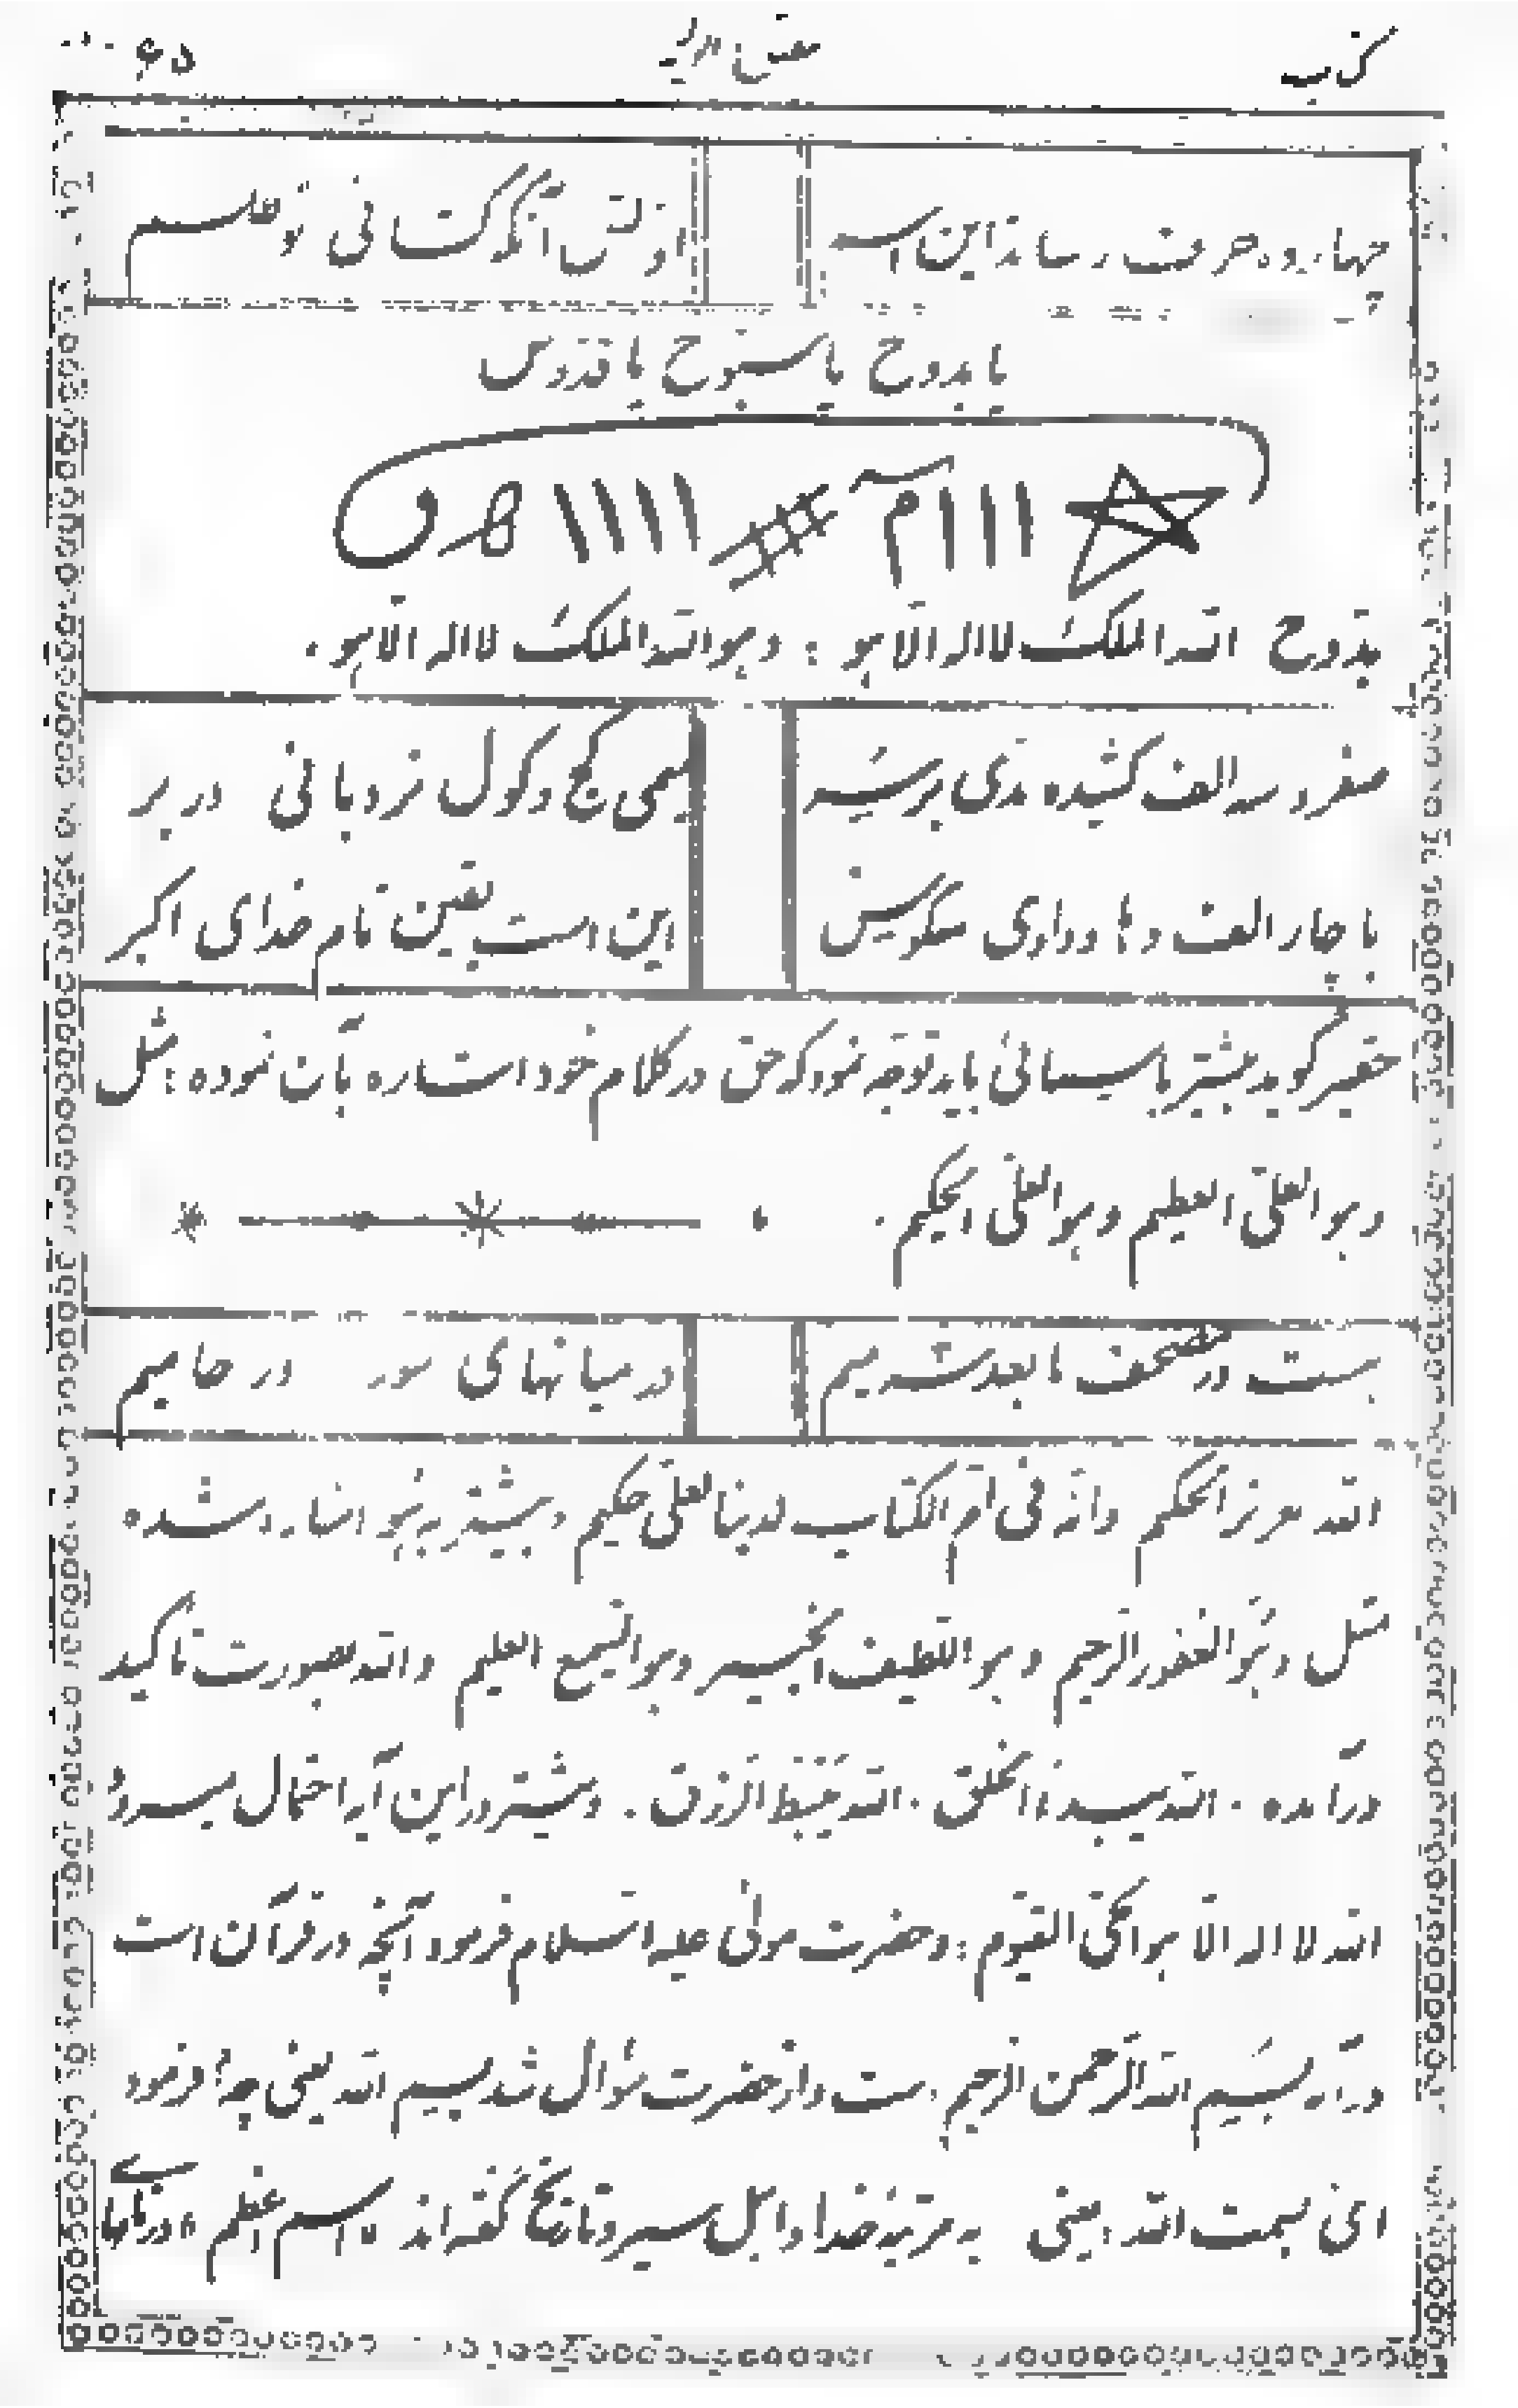 کتاب ۶۵
چهارده حرف رساند این اسم از نقش آنکه کتانی تو طلسم
یا بدوح یا سبوح یا قدوس
☆ ااا م # اااا ه و
بدوح الله الملک لا اله الا هو : و هو الله الملک لا اله الا هو .
صفر و سه الف کشیده مدی بر سر میمی کج و کول نردبانی در بر
با چار الف و ها و واوی معکوس این است یقین نام خدای اکبر
حقیر گوید بیشتر باسمائی باید توجه نمود که حق در کلام خود اشاره بآن نموده : مثل
و هو العلی العظیم و هو العلی الحکیم .
هست در مصحف ما بعد سه میم در میانهای سور در حامیم
الله عزیز الحکیم وانه فی ام الکتاب لدینا لعلی حکیم و بیشتر به هو اشاره شده
مثل و هو الغفور الرحیم و هو اللطیف الخبیر و هو السمیع العلیم و الله بصورت تاکید
درآمده . الله یبدؤا الخلق . الله یبسط الرزق . و بیشتر در این آیه احتمال میرود
الله لا اله الا هو الحی القیوم : و حضرت مولی علیه السلام فرمود آنچه در قرآن است
در آیه بسم الله الرحمن الرحیم است و از حضرت سؤال شد بسم الله یعنی چه ؟ فرمود
ای بسمت الله یعنی به مرتبه خدا و اهل سیر و تاریخ گفته اند اسم اعظم